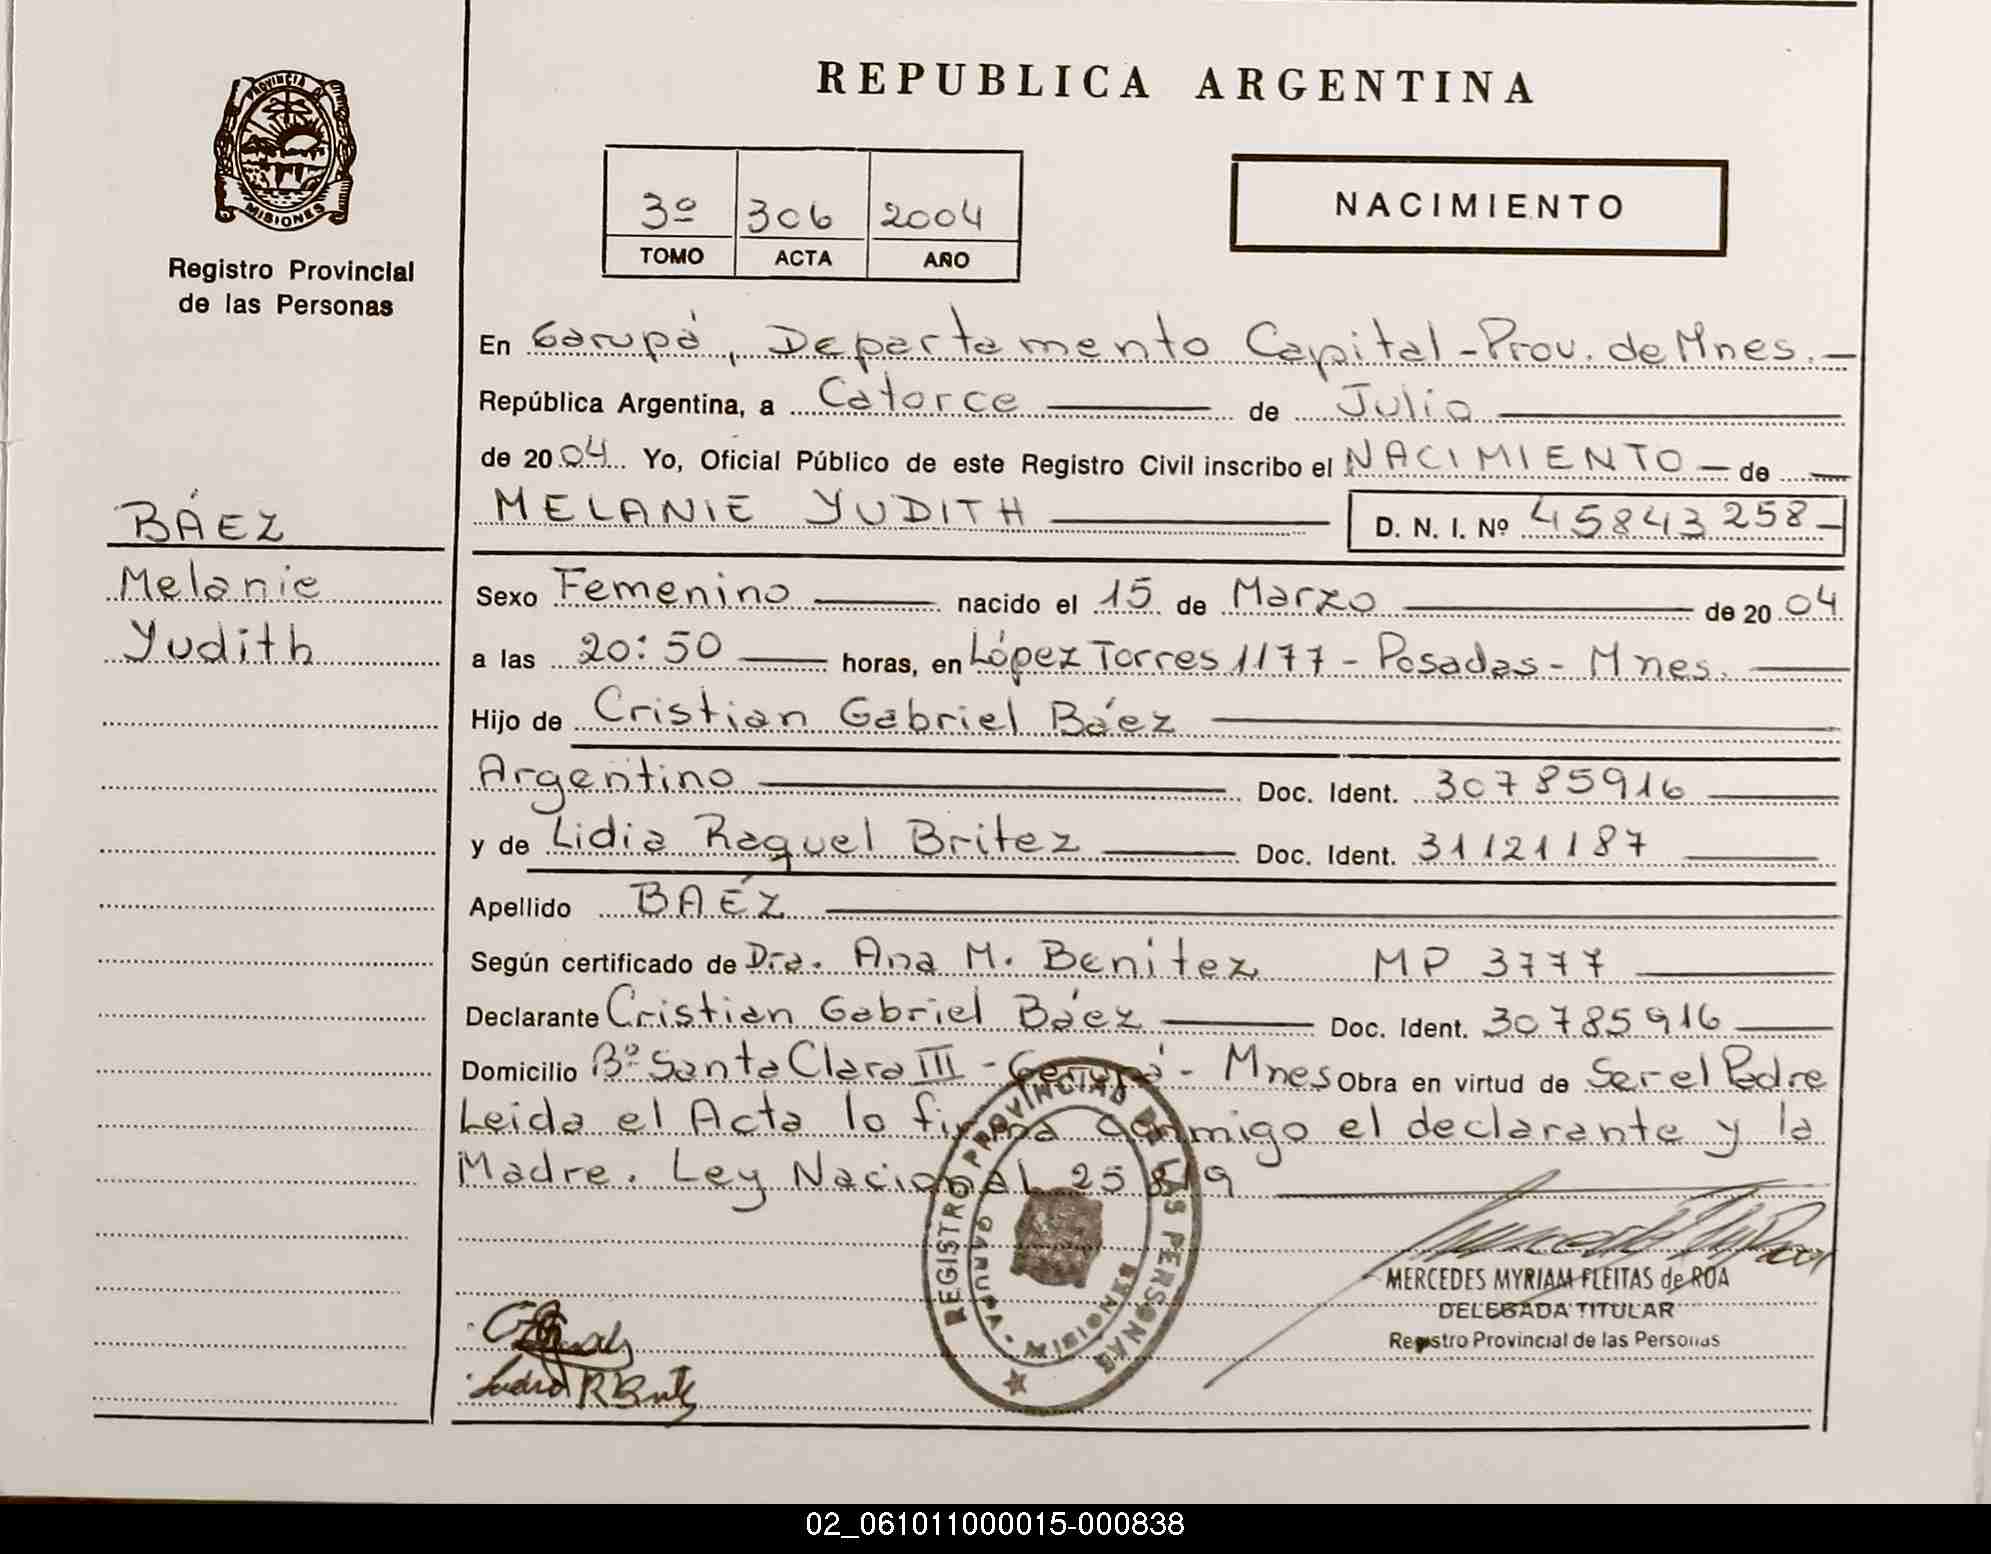 PROVINCIA D
MISIONES
Registro Provincial
de las Personas
BÁEZ
Melanie
Yudith
REPUBLICA ARGENTINA
3º 306 2004
TOMO ACTA AÑO
NACIMIENTO
En Garupá, Departamento Capital - Prov. de Mnes. —
República Argentina, a Catorce — de Julio —
de 2004 Yo, Oficial Público de este Registro Civil inscribo el NACIMIENTO — de —
MELANIE YUDITH — D. N. I. Nº 45843258 –
Sexo Femenino — nacido el 15 de Marzo — de 2004
a las 20:50 — horas, en López Torres 1177 - Posadas - Mnes. —
Hijo de Cristian Gabriel Báez —
Argentino — Doc. Ident. 30785916 —
y de Lidia Raquel Britez — Doc. Ident. 31121187 —
Apellido BAÉZ —
Según certificado de Dra. Ana M. Benitez MP 3777 —
Declarante Cristian Gabriel Báez — Doc. Ident. 30785916 —
Domicilio Bº Santa Clara III - Garupá - Mnes Obra en virtud de Ser el Padre
Leida el Acta lo firma conmigo el declarante y la
Madre. Ley Nacional 25819 —
REGISTRO PROVINCIAL DE LAS PERSONAS
GARUPA MISIONES
MERCEDES MYRIAM FLEITAS de ROA
DELEGADA TITULAR
Registro Provincial de las Personas
02_061011000015-000838